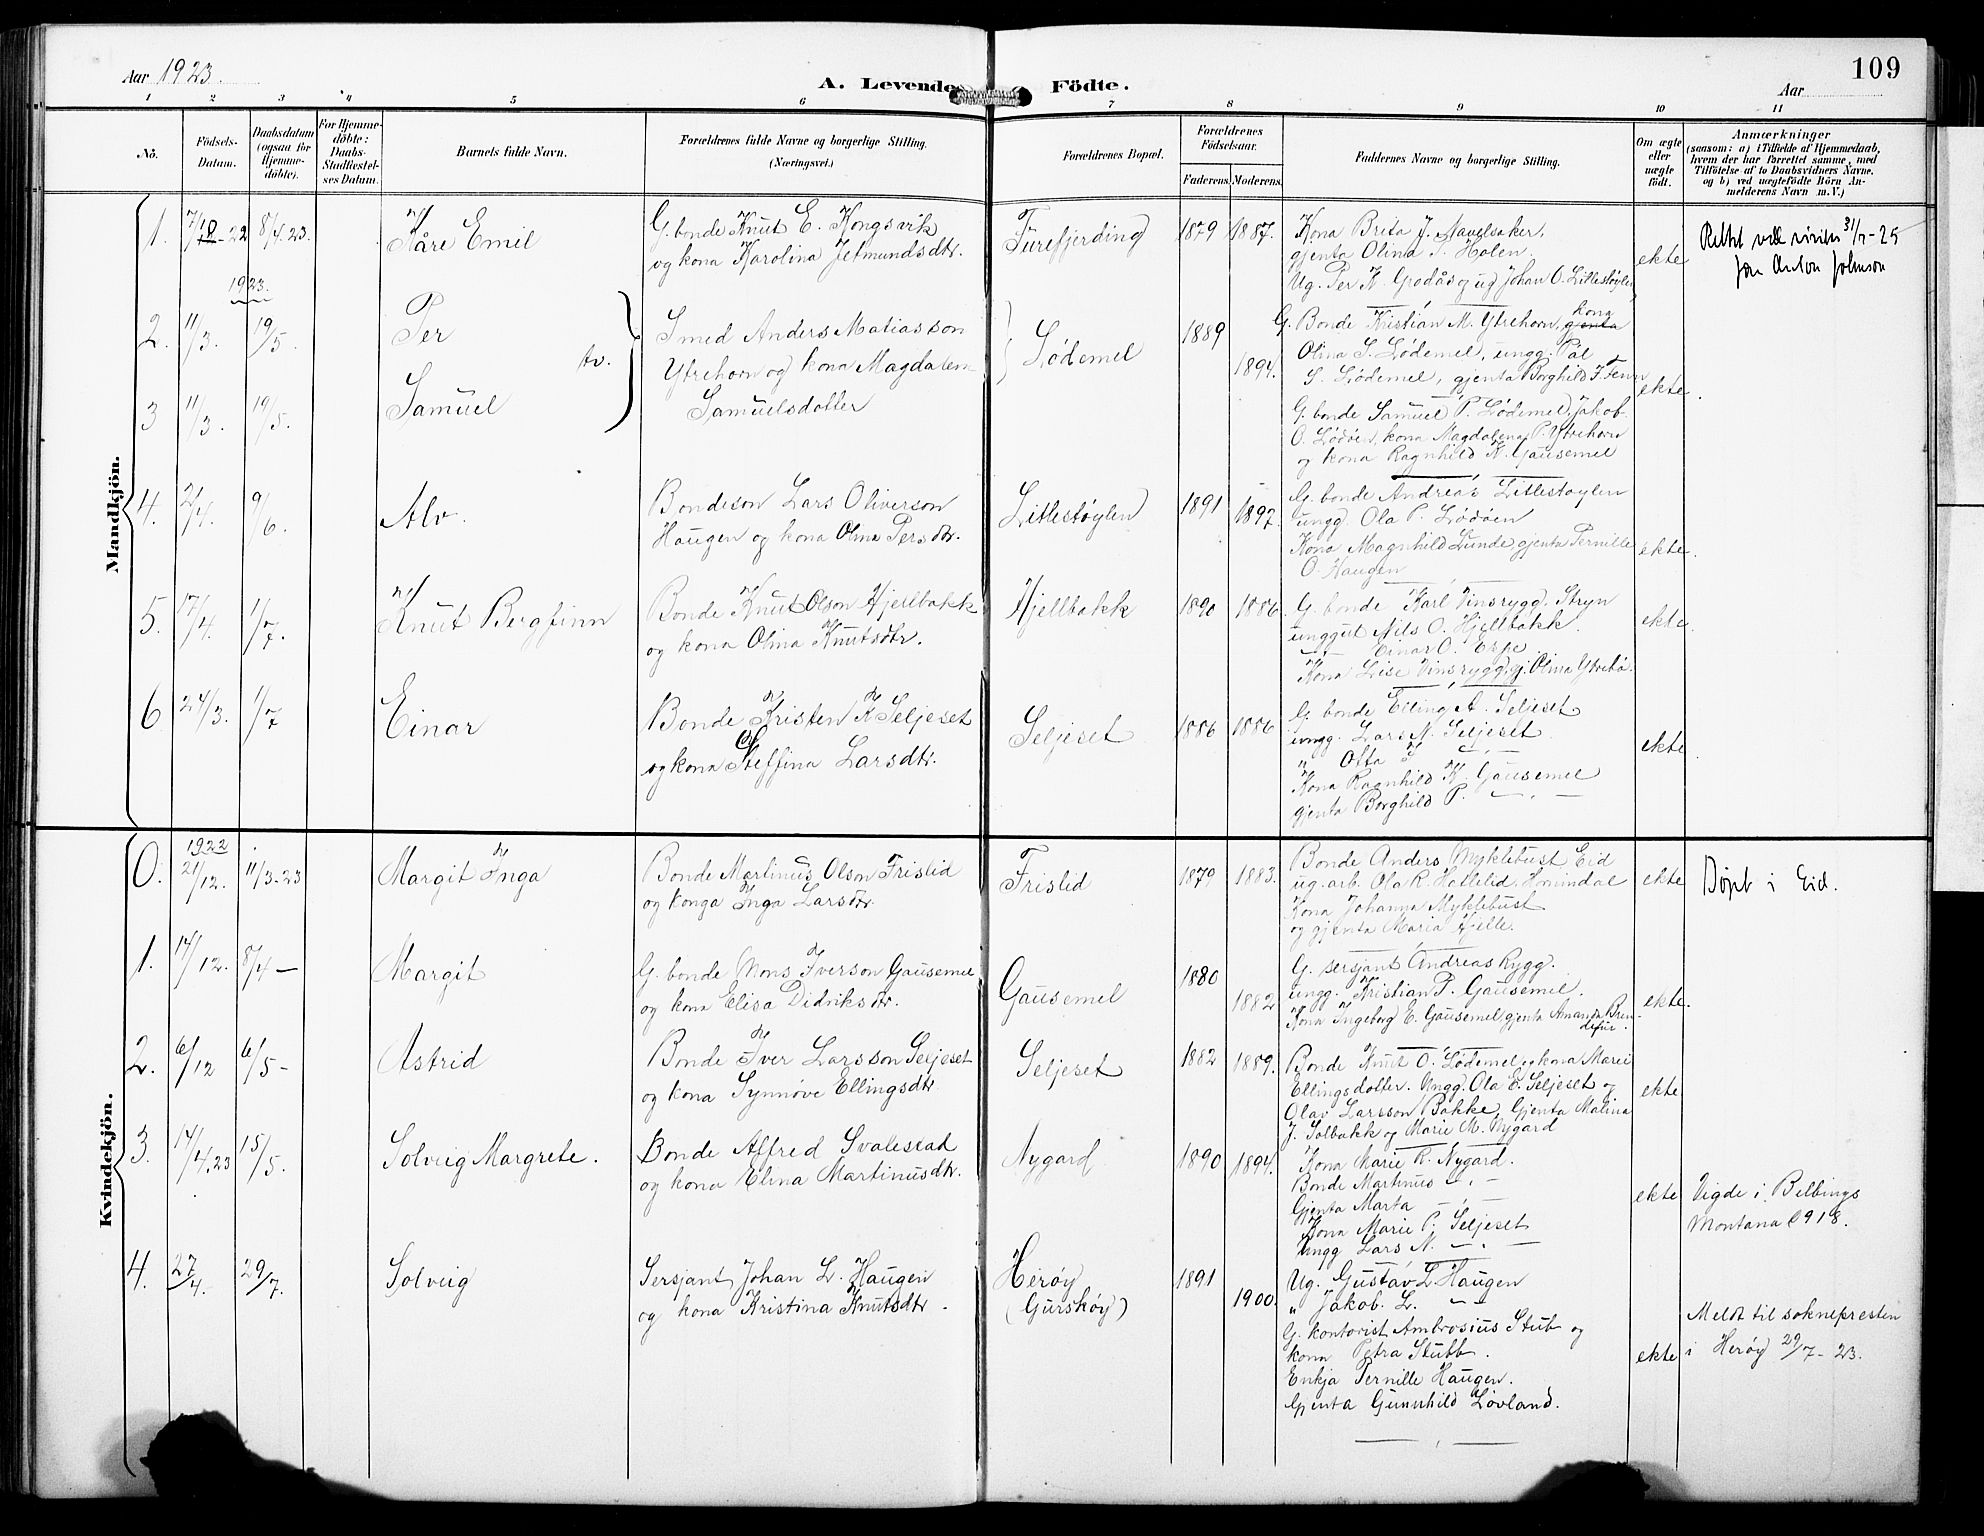 Aar 1923.
A. Levende Födte.
109
Aar
1 2 3 4 5 6 7 8 9 10 11
No.
Födsels-Datum.
Daabsdatum (ogsaa for Hjemme-döbte).
For Hjemme-döbte: Daabs-Stadfæstel-ses Datum.
Barnets fulde Navn.
Forældrenes fulde Navne og borgerlige Stilling.
(Næringsvei.)
Forældrenes Bopæl.
Forældrenes Födselsaar.
Faderens. Moderens.
Faddernes Navne og borgerlige Stilling.
Om ægte eller uægte födt.
Anmærkninger
(saasom: a) i Tilfælde af Hjemmedaab,
hvem der har forrettet samme, med
Tilföielse af to Daabsvidners Navne,
og b) ved uægtefödte Börn An-
melderens Navn m. V.)
Mandkjön.
1. 7/10-22 8/4.23. Kåre Emil
G. bonde Knut E. Kongsvik
og kona Karolina Jetmundsdtr.
Furefjerding 1879 1887.
Kona Brita J. Navelsaker,
gjenta Olina S. Holen.
Ug. Per K. Grodås og ug Johan O. Litlestøylen
ekte
Rettet 31/7-25
Anton Johnson
1923.
2. 11/3. 19/5. Per
tv.
3 11/3. 19/5. Samuel
Smed Anders Matiasson
Ytrehorn og kona Magdalena
Samuelsdotter
Lødemel 1889 1894.
G. Bonde Kristian M. Ytrehorn, kona gjenta
Olina S. Lødemel, ungg. Pål
S. Lødemel, gjenta Borghild J. Fenn
ekte.
G. bonde Samuel P. Lødemel, Jakob
O. Lødøen, kona Magdalena P. Ytrehorn
og kona Ragnhild K. Gausemel
4. 2/4. 9/6. Alv.
Bondeson Lars Oliverson
Haugen og kona Olina Persdtr.
Litlestøylen 1891 1897.
G. bonde Andreas Litlestøylen
ungg. Ola P. Lødøen
Kona Magnhild Lunde, gjenta Pernille
O. Haugen
ekte.
5. 17/4. 1/7. Knut Bergfinn
Bonde Knut Olson Hjellbakk
og kona Olina Knutsdtr.
Hjellbakk 1890 1886.
G. bonde Karl Vinsrygg. Stryn
unggut Nils O. Hjellbakk.
— " — Einar O. Espe.
Kona Lise Vinsrygg, gj. Olina Ytrebø.
ekte.
6 24/3. 1/7 Einar
Bonde Kristen K Seljeset
og kona Steffina Larsdtr.
Seljeset 1886 1886
G. bonde Elling A. Seljeset
ungg. Lars N. Seljeset
" Otta J — " —
Kona Ragnhild K. Gausemel
gjenta Borghild P. — " —
ekte
Kvindekjön.
1922
0. 21/12. 11/3-23 Margit Inga
Bonde Martinus Olson Frislid
og konga Inga Larsdtr.
Frislid 1879 1883.
Bonde Anders Myklebust Eid
ug. arb. Ola R. Hatlelid, Honindal
Kona Johanna Myklebust
og gjenta Maria Hjelle.
ekte
Døpt i Eid.
1. 14/12. 8/4 — Margit
G. bonde Mons Iverson Gausemel
og kona Elisa Didriksdtr.
Gausemel 1880 1882
G. sersjant Andreas Rygg.
ungg. Kristian P. Gausemel.
Kona Ingeborg E. Gausemel gjenta Amanda Bren-
defur.
ekte.
2. 6/12 6/5 — Astrid
Bonde Iver Larsson Seljeset
og kona Synnøve Ellingsdtr
Seljeset 1882 1889.
Bonde Knut O. Lødemel, kona Marie
Ellingsdotter. Ungg. Ola E. Seljeset og
Olav Larsson Bakke, Gjenta Malina
J. Solbakk og Marie M. Nygard
ekte
3. 14/4.23 15/5. Solveig Margrete.
Bonde Alfred Svalestad
og kona Elina Martinusdtr.
Nygard 1890 1894.
Kona Marie R. Nygard.
Bonde Martinus — " —
Gjenta Marta — " —
Kona Marie P. Seljeset
Ungg Lars N. — " —
ekte
Vigde i Belbings
Montana 1918.
4. 27/4. 29/7. Solveig
Sersjant Johan L. Haugen
og kona Kristina Knutsdtr.
Herøy
(Gurskøy)
1891 1900.
Ug. Gustav L. Haugen
" Jakob. L. — " —
G. kontorist Ambrosius Stub og
kona Petra Stubb.
Enkja Pernille Haugen.
Gjenta Gunnhild Løvland.
ekte
Meldt til soknepresten
i Herøy 29/7-23.